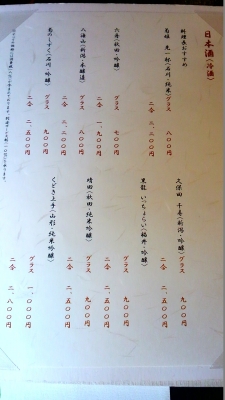 日本酒(冷酒)
料理長おすすめ
菊姫 先一杯(石川・純米)
グラス 八〇〇円
二合
六舟(秋田・吟醸)
グラス 七〇〇円
二合 一、九〇〇円
八海山(新潟・本醸造)
グラス 八〇〇円
二合 二、二〇〇円
菊のしずく(石川・吟醸)
グラス 九〇〇円
二合 二、五〇〇円
久保田 千寿(新潟・吟醸)
グラス 九〇〇円
二合 二、五〇〇円
黒龍 いっちょらい(福井・吟醸)
グラス 九〇〇円
二合 二、五〇〇円
晴田(秋田・純米吟醸)
グラス 九〇〇円
二合 二、五〇〇円
くどき上手(山形・純米吟醸)
グラス 一、〇〇〇円
二合 二、八〇〇円